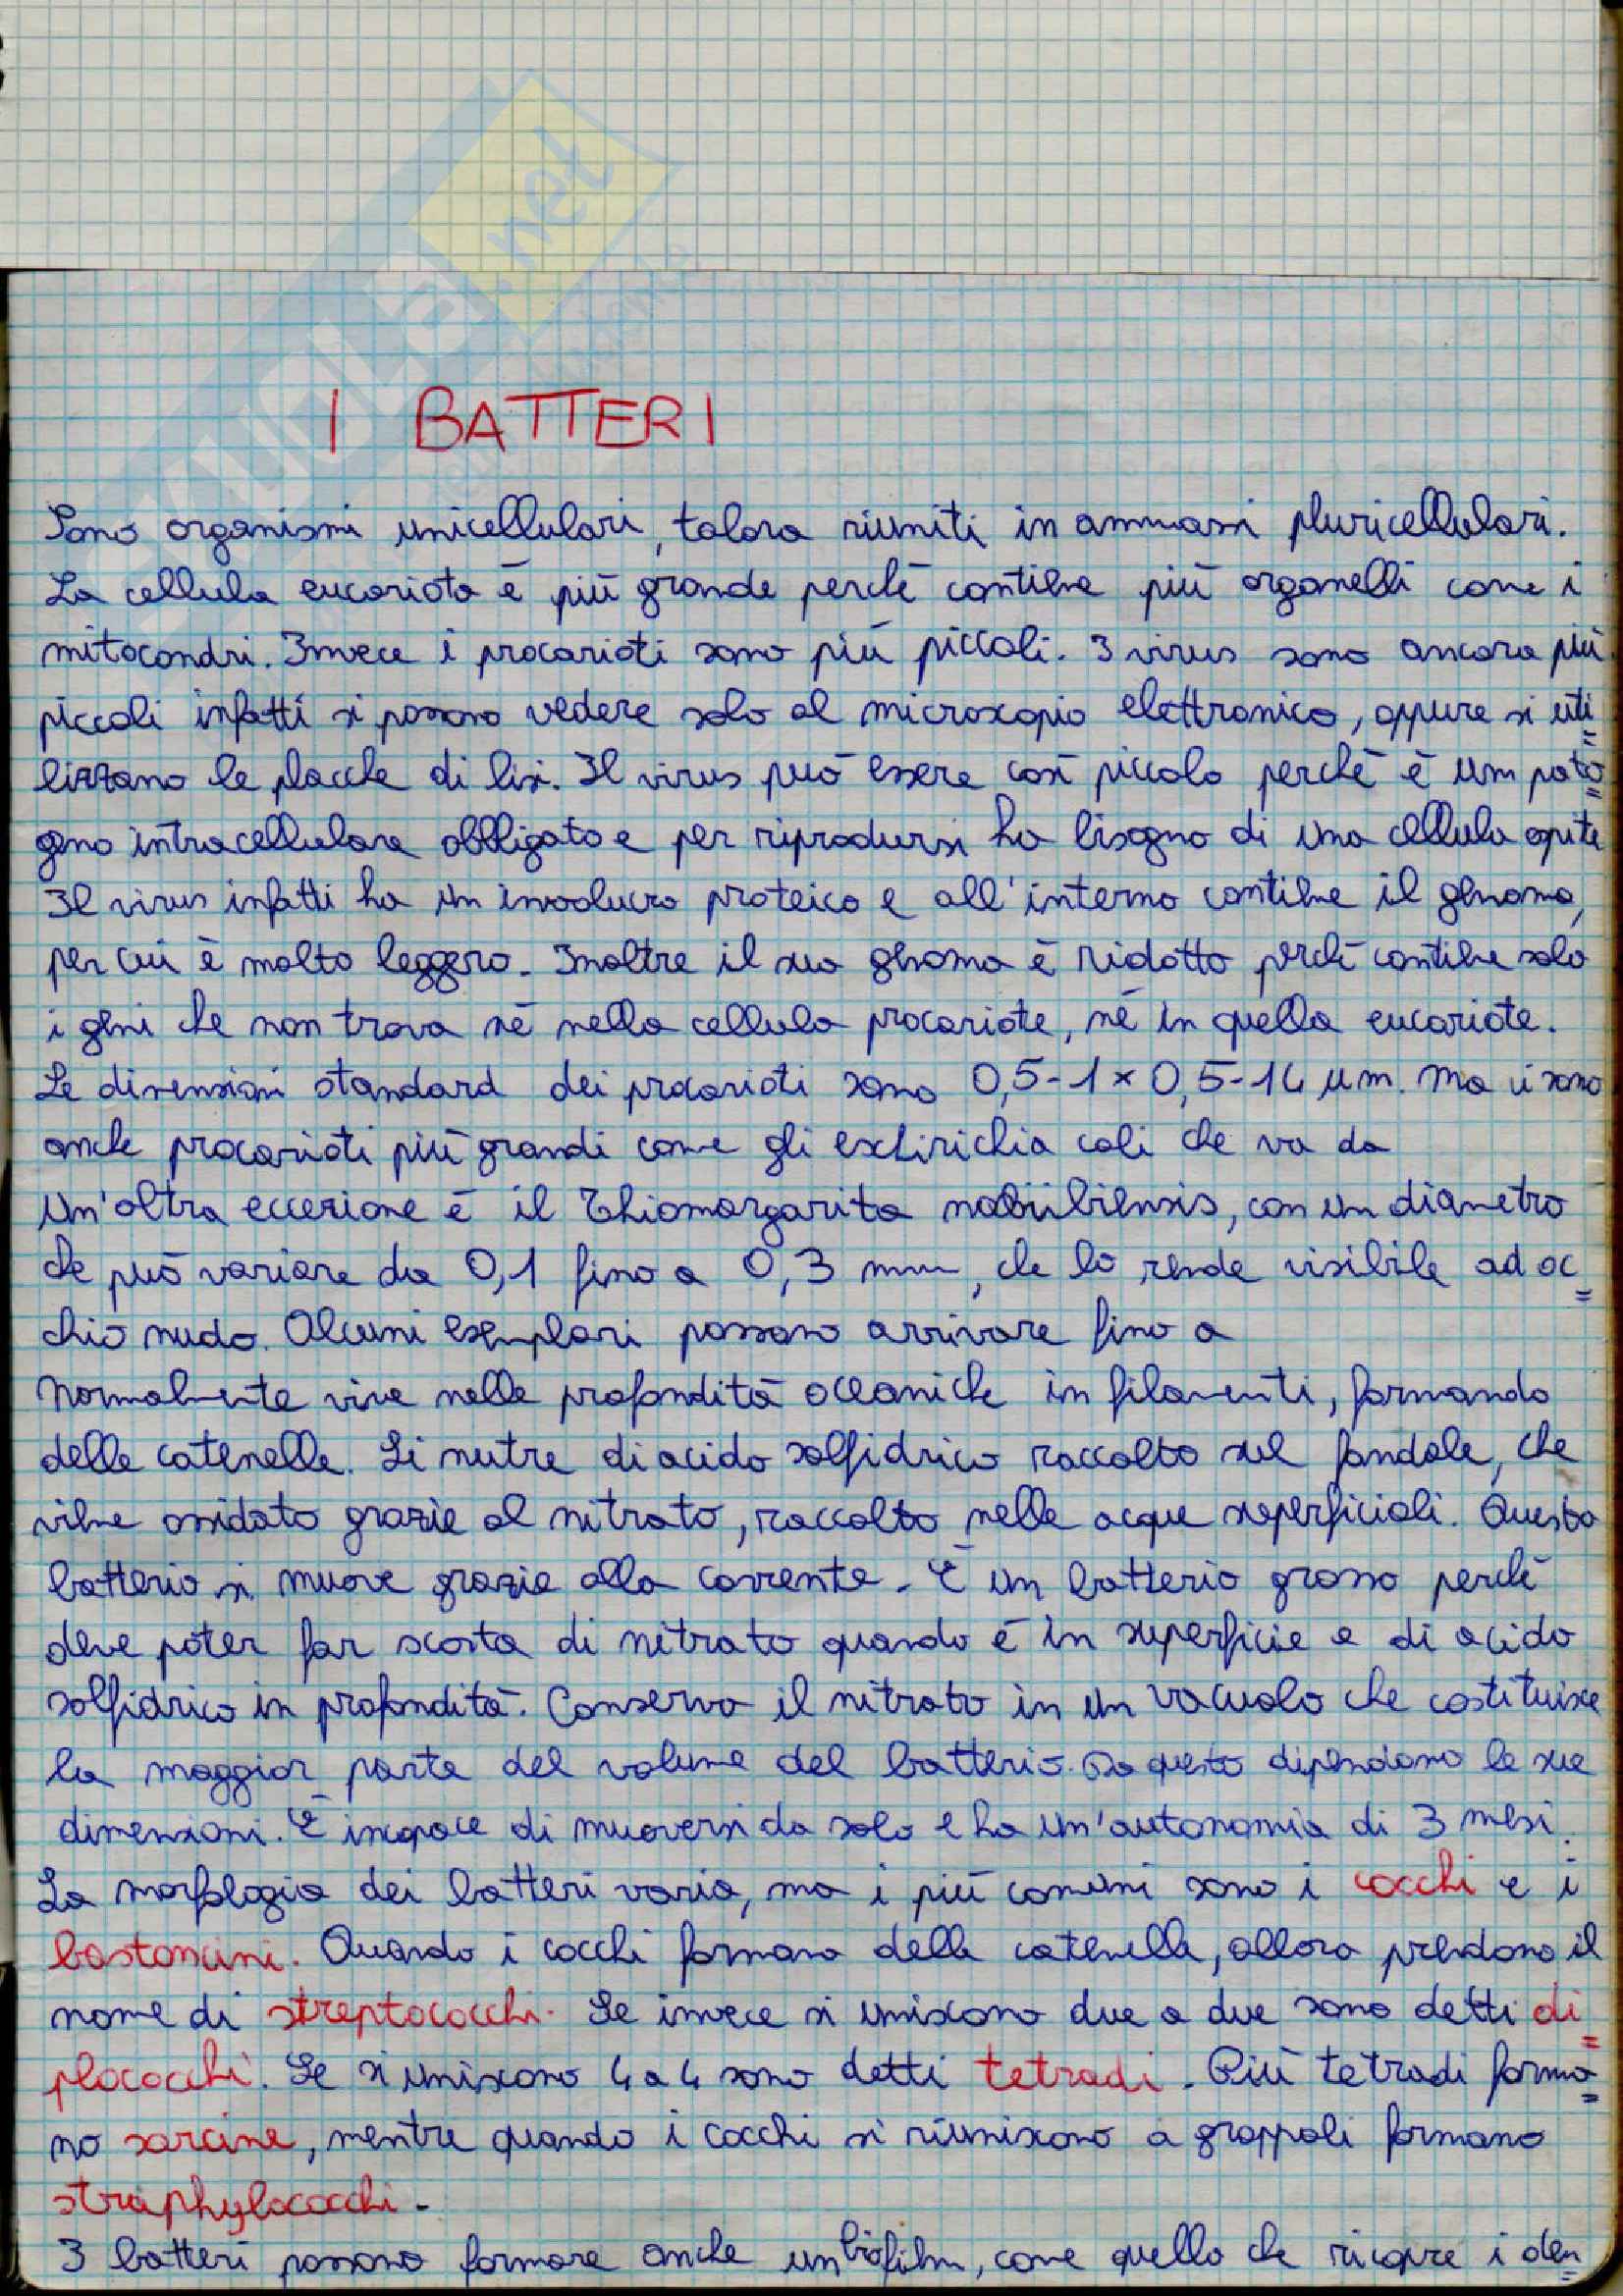 SKUOLA.net
I BATTERI
Sono organismi unicellulari, talora riuniti in ammassi pluricellulari.
La cellula eucariota è più grande perchè contiene più organelli come i
mitocondri. Invece i procarioti sono più piccoli. I virus sono ancora più
piccoli infatti si possono vedere solo al microscopio elettronico, oppure si uti=
lizzano le placche di lisi. Il virus può essere così piccolo perchè è un pato=
geno intracellulare obbligato e per riprodursi ha bisogno di una cellula ospite
Il virus infatti ha un involucro proteico e all'interno contiene il genoma,
per cui è molto leggero. Inoltre il suo genoma è ridotto perchè contiene solo
i geni che non trova nè nella cellula procariote, nè in quella eucariote.
Le dimensioni standard dei procarioti sono 0,5-1 x 0,5-14 µm. Ma ci sono
anche procarioti più grandi come gli eschirichia coli che va da
Un'altra eccezione è il Thiomargarita nabiibiensis, con un diametro
che può variare da 0,1 fino a 0,3 mm, che lo rende visibile ad oc=
chio nudo. Alcuni esemplari possono arrivare fino a
Normalmente vive nelle profondità oceaniche in filamenti, formando
delle catenelle. Si nutre di acido solfidrico raccolto sul fondale, che
viene ossidato grazie al nitrato, raccolto nelle acque superficiali. Questo
batterio si muove grazie alla corrente. È un batterio grosso perchè
deve poter far scorta di nitrato quando è in superficie e di acido
solfidrico in profondità. Conserva il nitrato in un vacuolo che costituisce
la maggior parte del volume del batterio. Da questo dipendono le sue
dimensioni. È incapace di muoversi da solo e ha un'autonomia di 3 mesi.
La morfologia dei batteri varia, ma i più comuni sono i cocchi e i
bastoncini. Quando i cocchi formano delle catenelle, allora prendono il
nome di streptococchi. Se invece si uniscono due a due sono detti di=
plococchi. Se si uniscono 4 a 4 sono detti tetradi. Più tetradi forma=
no sarcine, mentre quando i cocchi si riuniscono a grappoli formano
straphylococchi.
I batteri possono formare anche un biofilm, come quello che ricopre i den=